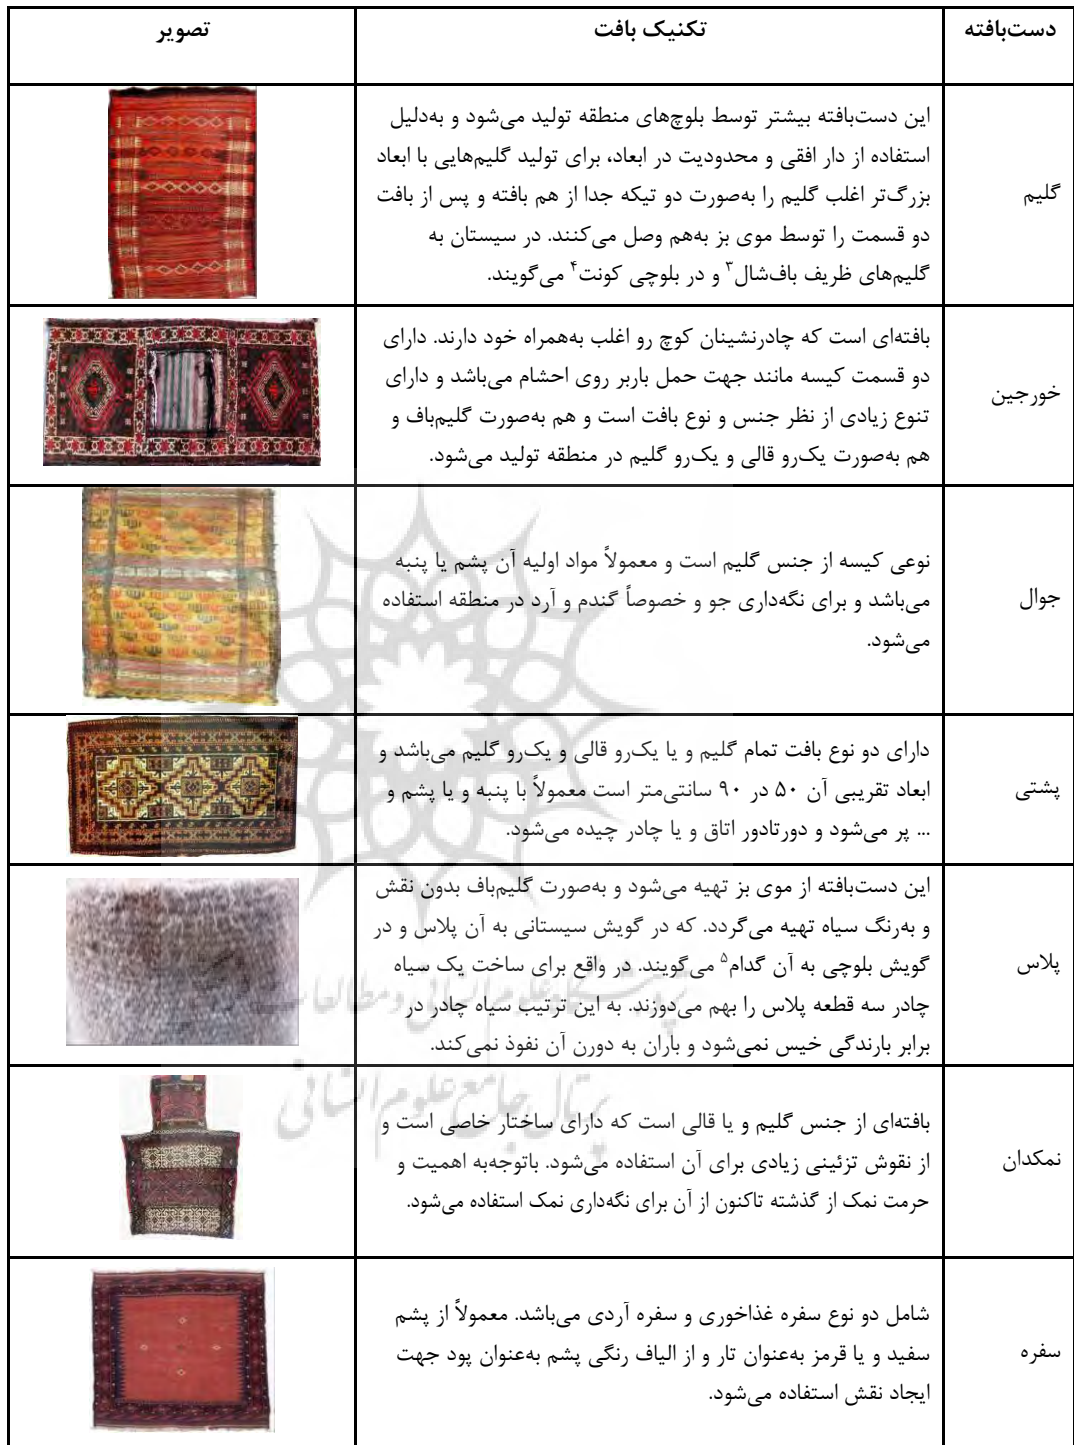 دست‌بافته
تکنیک بافت
تصویر
گلیم
این دست‌بافته بیشتر توسط بلوچ‌های منطقه تولید می‌شود و به‌دلیل
استفاده از دار افقی و محدودیت در ابعاد، برای تولید گلیم‌هایی با ابعاد
بزرگ‌تر اغلب گلیم را به‌صورت دو تیکه جدا از هم بافته و پس از بافت
دو قسمت را توسط موی بز به‌هم وصل می‌کنند. در سیستان به
گلیم‌های ظریف باف‌شال۳ و در بلوچی کونت۴ می‌گویند.
خورجین
بافته‌ای است که چادرنشینان کوچ رو اغلب به‌همراه خود دارند. دارای
دو قسمت کیسه مانند جهت حمل باربر روی احشام می‌باشد و دارای
تنوع زیادی از نظر جنس و نوع بافت است و هم به‌صورت گلیم‌باف و
هم به‌صورت یک‌رو قالی و یک‌رو گلیم در منطقه تولید می‌شود.
جوال
نوعی کیسه از جنس گلیم است و معمولاً مواد اولیه آن پشم یا پنبه
می‌باشد و برای نگه‌داری جو و خصوصاً گندم و آرد در منطقه استفاده
می‌شود.
پشتی
دارای دو نوع بافت تمام گلیم و یا یک‌رو قالی و یک‌رو گلیم می‌باشد و
ابعاد تقریبی آن ۵۰ در ۹۰ سانتی‌متر است معمولاً با پنبه و یا پشم و
... پر می‌شود و دورتادور اتاق و یا چادر چیده می‌شود.
پلاس
این دست‌بافته از موی بز تهیه می‌شود و به‌صورت گلیم‌باف بدون نقش
و به‌رنگ سیاه تهیه می‌گردد. که در گویش سیستانی به آن پلاس و در
گویش بلوچی به آن گدام۵ می‌گویند. در واقع برای ساخت یک سیاه
چادر سه قطعه پلاس را بهم می‌دوزند. به این ترتیب سیاه چادر در
برابر بارندگی خیس نمی‌شود و باران به دورن آن نفوذ نمی‌کند.
پژوهشگاه علوم انسانی و مطالعات فرهنگی
پرتال جامع علوم انسانی
نمکدان
بافته‌ای از جنس گلیم و یا قالی است که دارای ساختار خاصی است و
از نقوش تزئینی زیادی برای آن استفاده می‌شود. باتوجه‌به اهمیت و
حرمت نمک از گذشته تاکنون از آن برای نگه‌داری نمک استفاده می‌شود.
سفره
شامل دو نوع سفره غذاخوری و سفره آردی می‌باشد. معمولاً از پشم
سفید و یا قرمز به‌عنوان تار و از الیاف رنگی پشم به‌عنوان پود جهت
ایجاد نقش استفاده می‌شود.